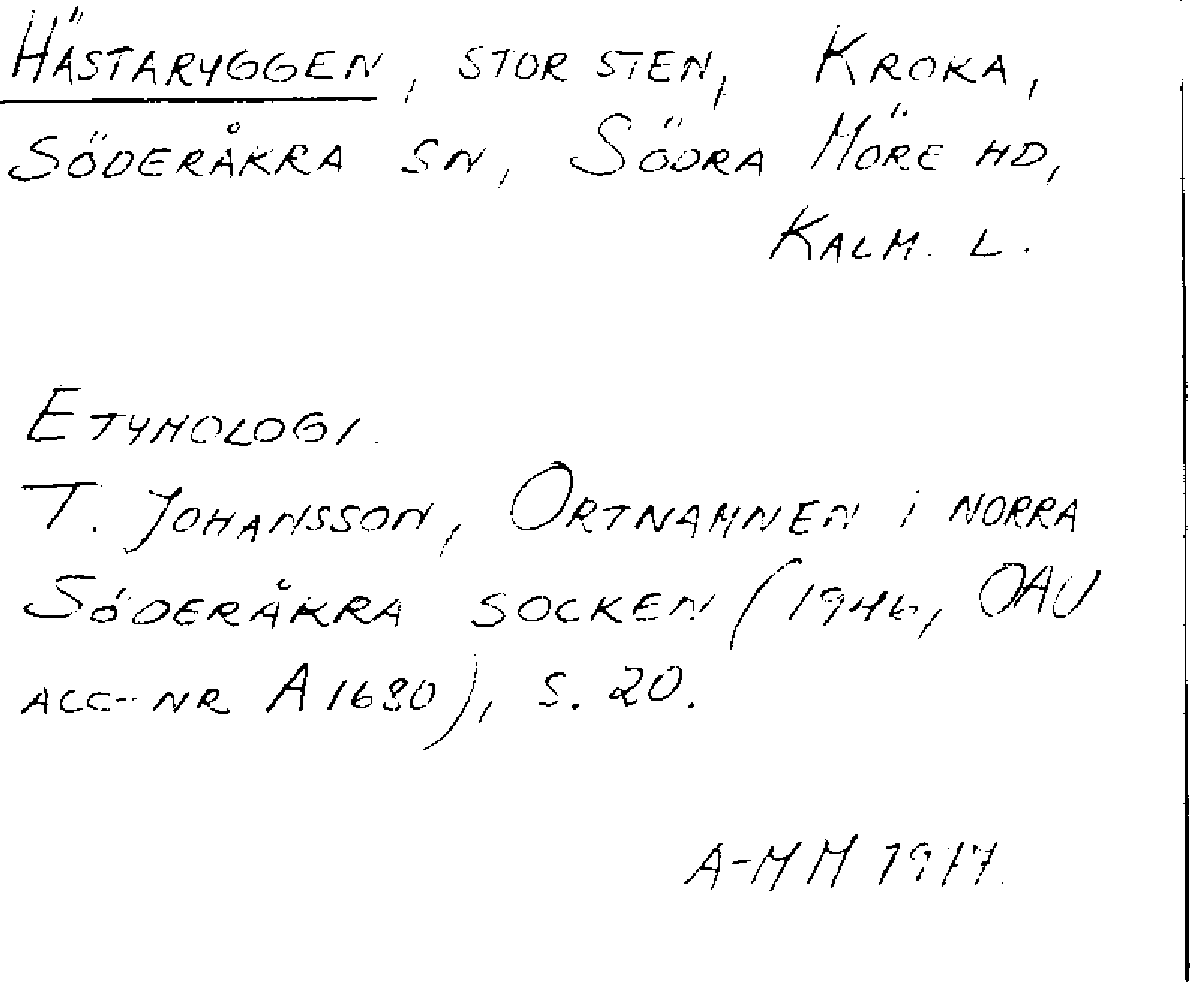 HÄSTARYGGEN, STOR STEN, KROKA,
SÖDERÅKRA SN, SÖDRA MÖRE HD,
KALM. L.
ETYMOLOGI.
T. JOHANSSON, ORTNAMNEN I NORRA
SÖDERÅKRA SOCKEN (1946, OAU
ACC-NR A 1680), S. 20.
A-MM